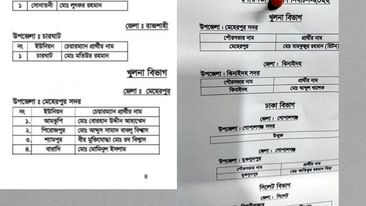 ১ সোনাতনী মোঃ লুৎফর রহমান
জেলা : রাজশাহী
উপজেলা : চারঘাট
নং ইউনিয়ন চেয়ারম্যান প্রার্থীর নাম
১ চারঘাট মোঃ মতিউর রহমান
খুলনা বিভাগ
জেলা : মেহেরপুর
উপজেলা : মেহেরপুর সদর
নং ইউনিয়ন চেয়ারম্যান প্রার্থীর নাম
১. আমঝুপি মোঃ বোরহান উদ্দীন আহাম্মেদ
২. পিরোজপুর মোঃ আব্দুস সামাদ বাবলু বিশ্বাস
৩. শ্যামপুর বীর মুক্তিযোদ্ধা মোঃ রব বিশ্বাস
৪. বারাদি মোঃ মোমিনুল ইসলাম
৪
খুলনা বিভাগ
উপজেলা : মেহেরপুর সদর
পৌরসভার নাম প্রার্থীর নাম
মেহেরপুর মোঃ মাহফুজুর রহমান (রিটন)
জেলা : ঝিনাইদহ
উপজেলা : ঝিনাইদহ সদর
পৌরসভার নাম প্রার্থীর নাম
ঝিনাইদহ মোঃ আব্দুল খালেক
ঢাকা বিভাগ
জেলা : গোপালগঞ্জ
উপজেলা : গোপালগঞ্জ সদর
উন্মুক্ত
উপজেলা : মুকসুদপুর
পৌরসভার নাম প্রার্থীর নাম
মুকসুদপুর
সিলেট বিভাগ
জেলা : সিলেট